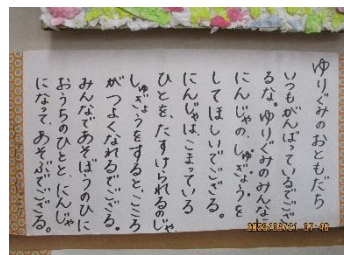 ゆりぐみのおともだち
いつもがんばっているでござ
るな。ゆりぐみのみんなに
にんじゃの、しゅぎょうを
してほしいでござる。
にんじゃは、こまっている
ひとを、たすけられるのじゃ
しゅぎょうをすると、こころ
がつよくなれるでござる。
みんなであそぼうのひに
おうちのひとと にんじゃ
になって、あそぶでござる。